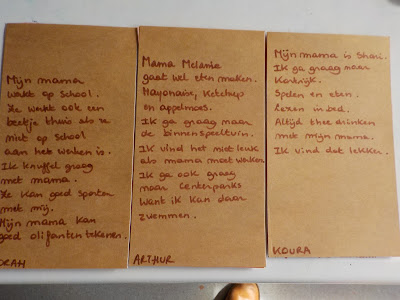 Mijn mama
werkt op school.
Ze werkt ook een
beetje thuis als ze
niet op school
aan het werken is.
Ik knuffel graag
met mama.
Ze kan goed sporten
met mij.
Mijn mama kan
goed olifanten tekenen.
ORAH
Mama Melanie
gaat wel eten maken.
Mayonaise, Ketchup
en appelmoes.
Ik ga graag naar
de binnenspeeltuin.
Ik vind het niet leuk
als mama moet werken
Ik ga ook graag
naar Centerparks
Want ik kan daar
zwemmen.
ARTHUR
Mijn mama is Shari.
Ik ga graag naar
Kortrijk.
Spelen en eten.
Lezen in bed.
Altijd thee drinken
met mijn mama.
Ik vind dat lekker.
KOURA